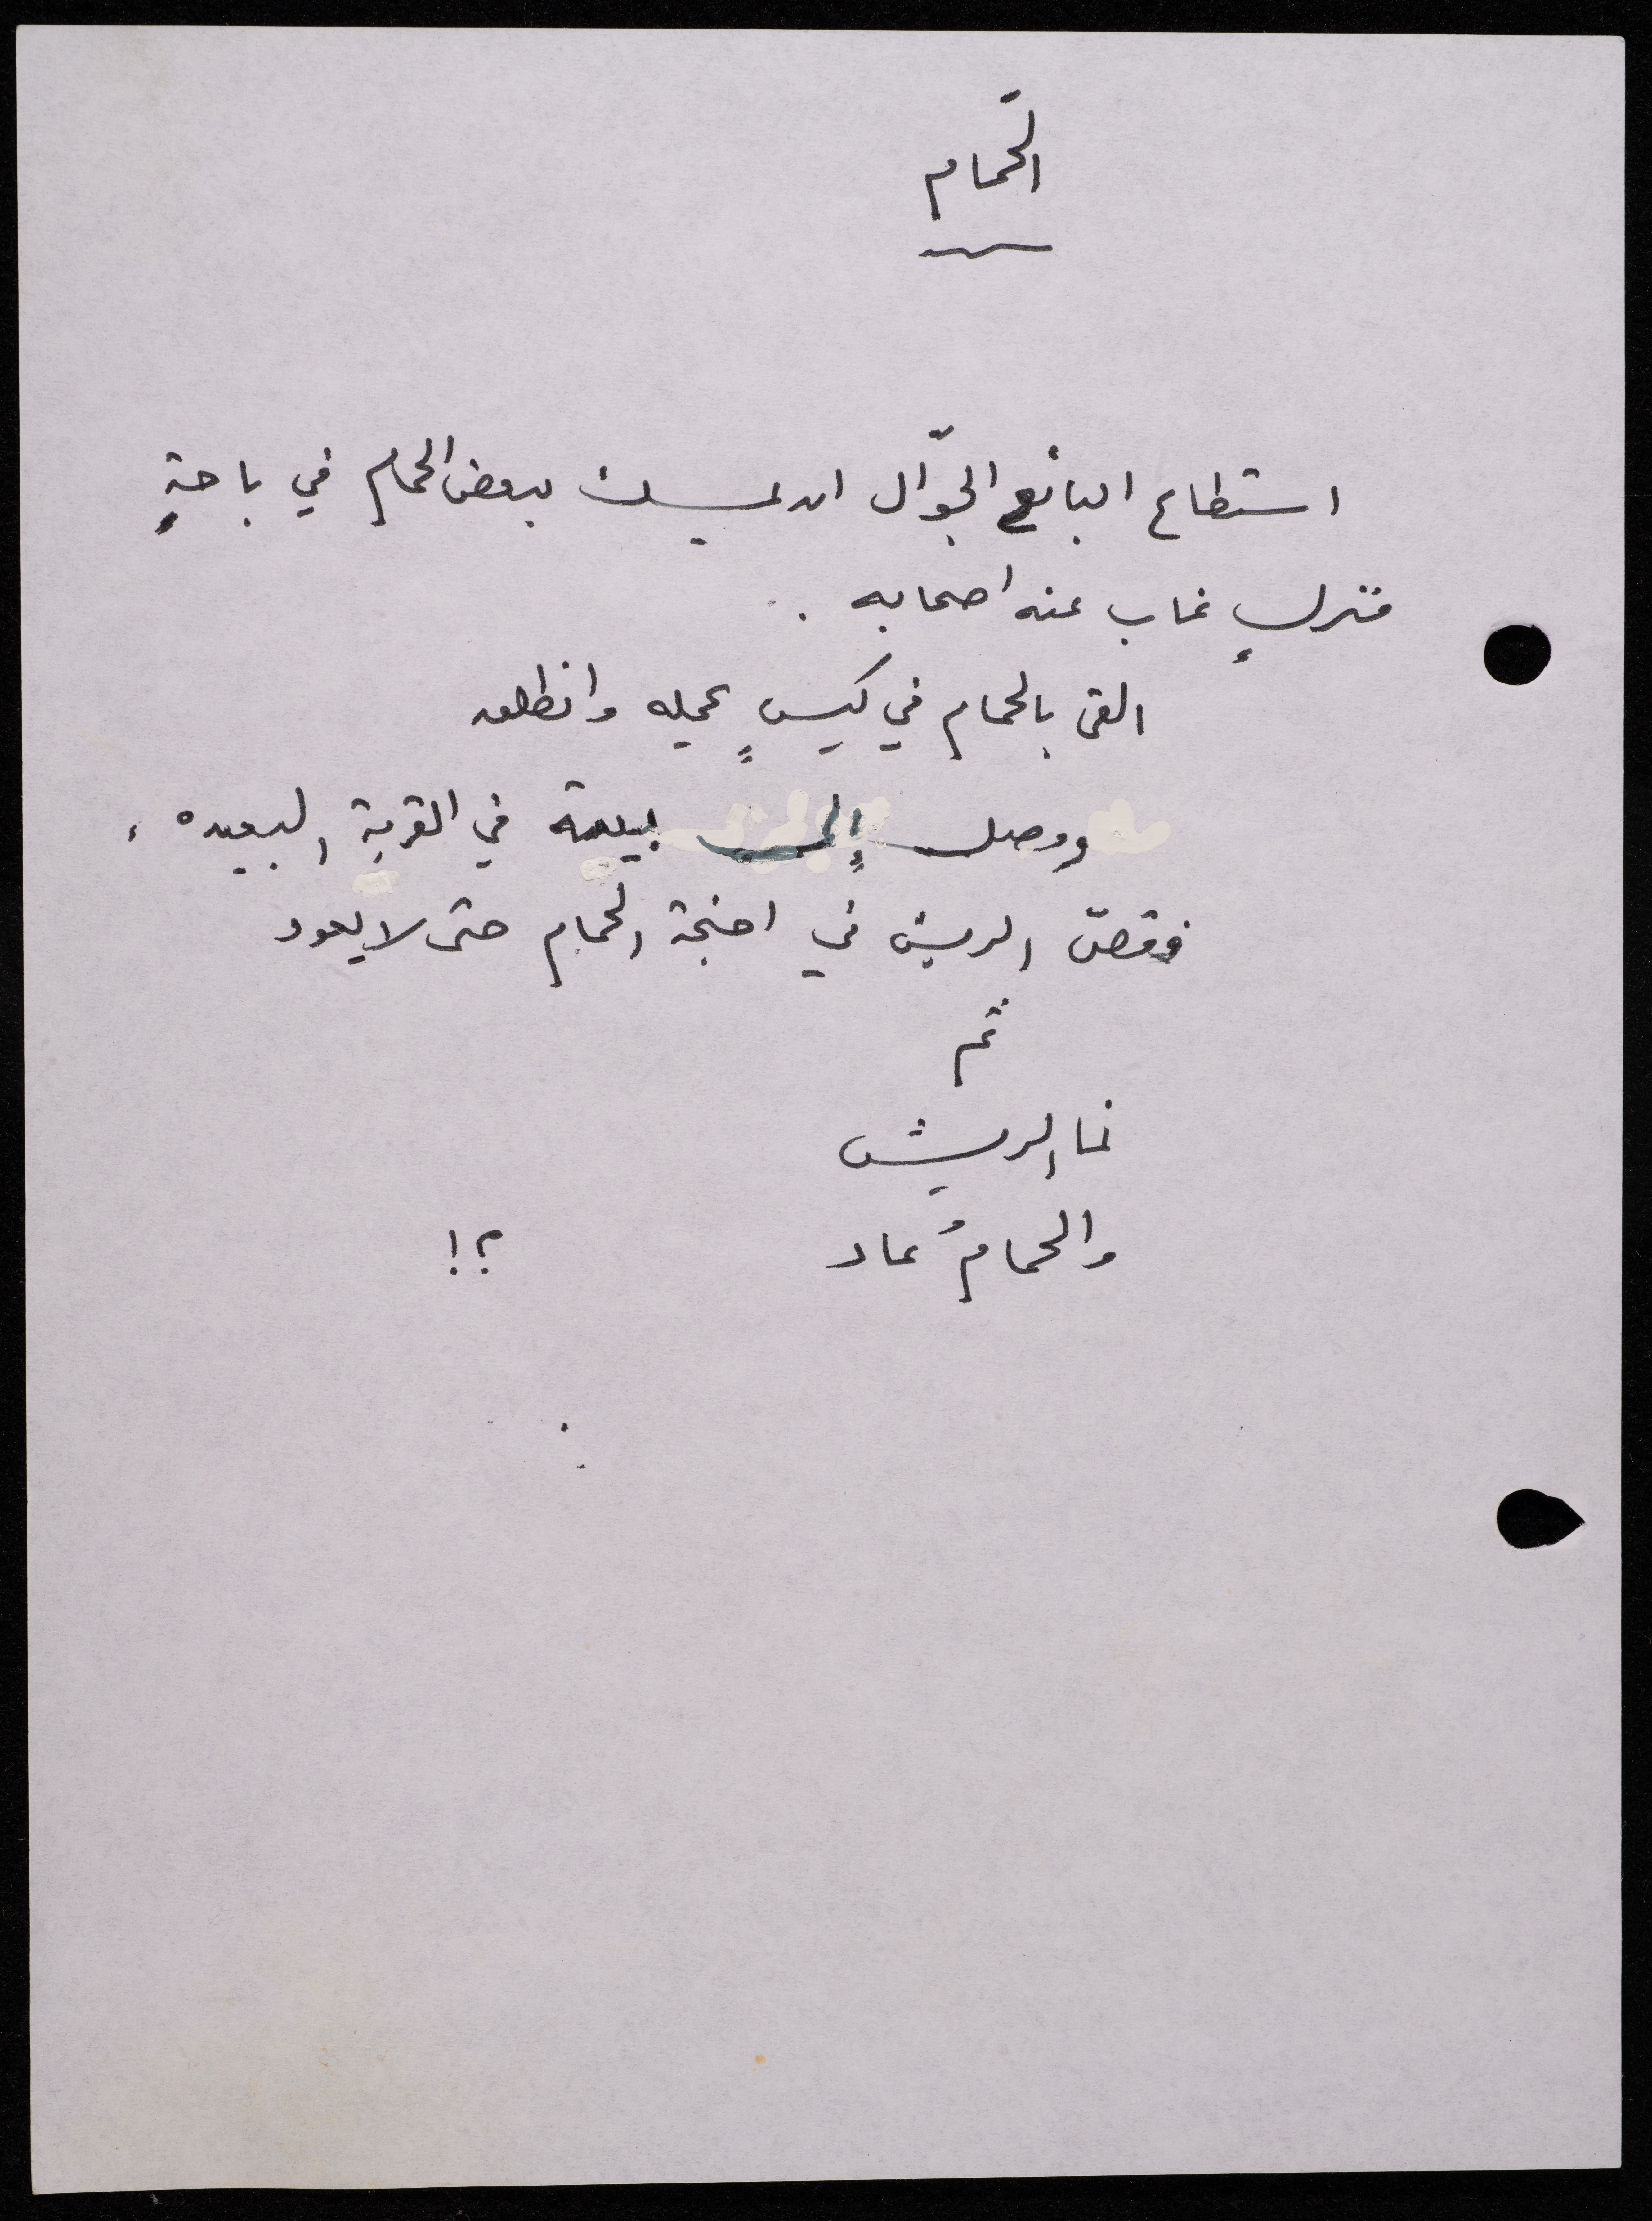 الحمام
استطاع البائع الجوّال ان يمسك ببعض الحمام في باحةٍ
منزلٍ غاب عنه اصحابه .
القى بالحمام في كيسٍ يحمله وانطلق
ووصل إلى بيته في القرية البعيده ،
فقصّ الريش في اجنحة الحمام حتى لا يعود
ثم
نما الريش
والحمامُ عاد ؟!